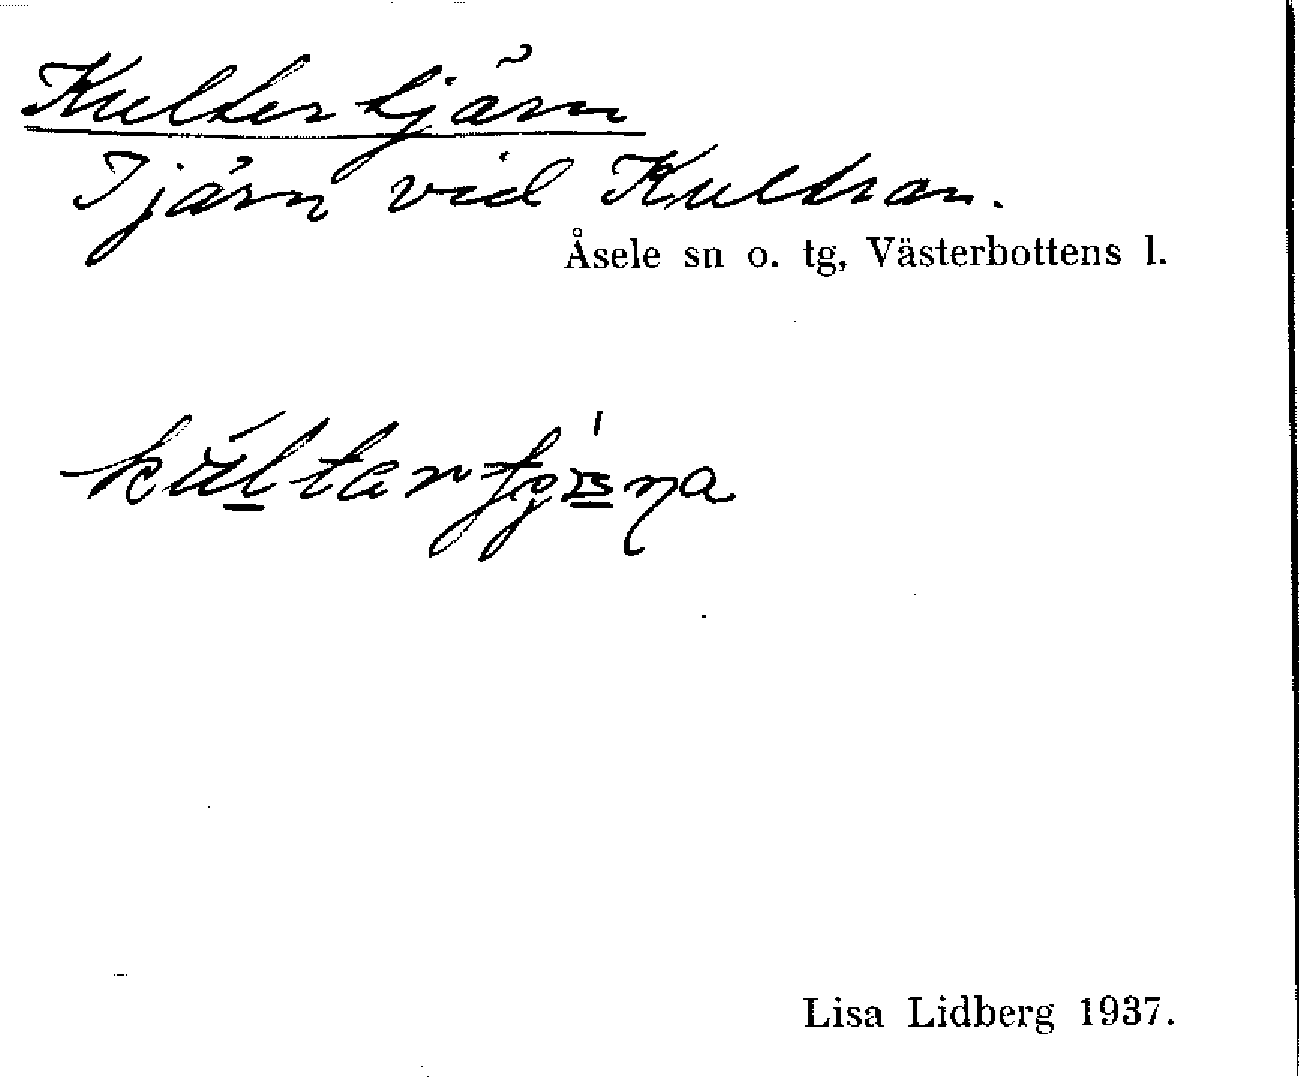 Kultertjärn
Tjärn vid Kultran.
Åsele sn o. tg, Västerbottens l.
Lisa Lidberg 1937.